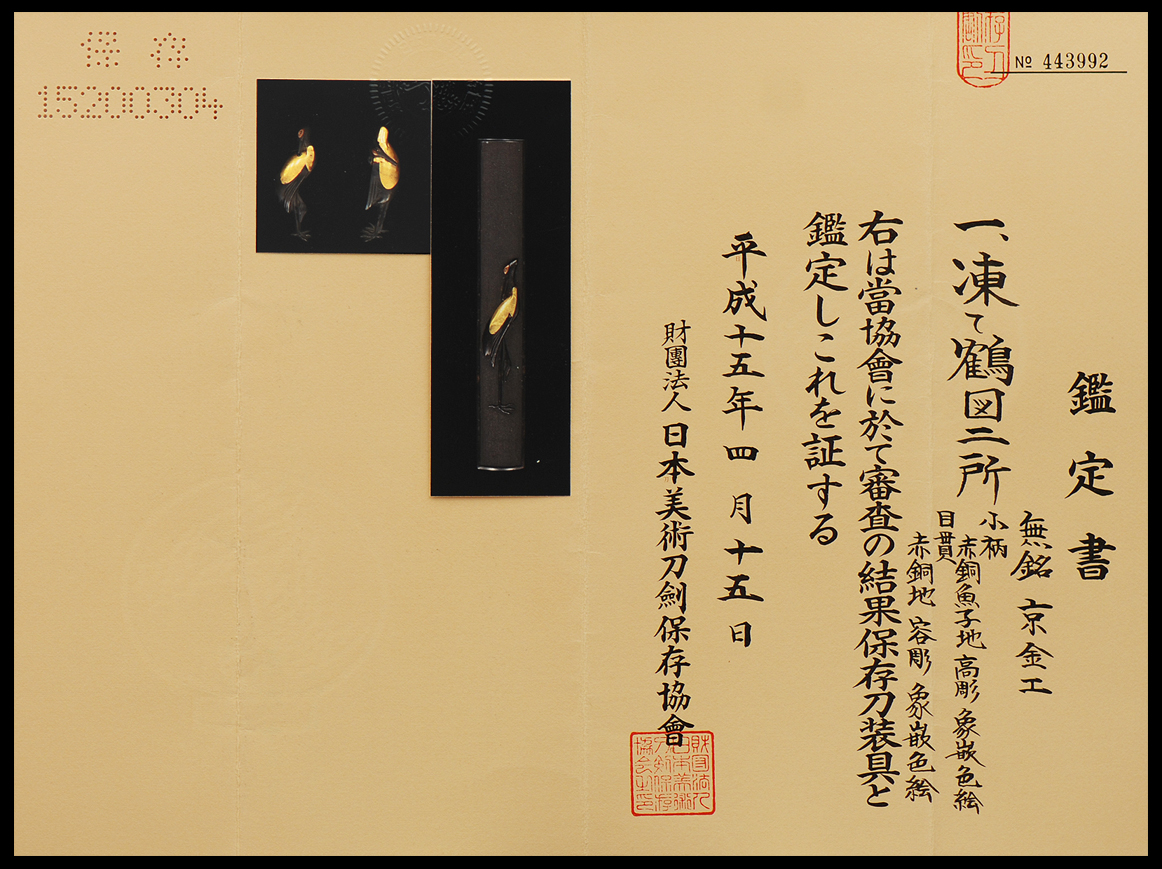 No 443992
鑑定書
一、凍て鶴図二所
無銘 京金工
小柄 赤銅魚子地 高彫 象嵌色絵
目貫 赤銅地 容彫 象嵌色絵
右は當協會に於て審査の結果保存刀装具と
鑑定しこれを証する
平成十五年四月十五日
財團法人日本美術刀劍保存協會
保存
15200304